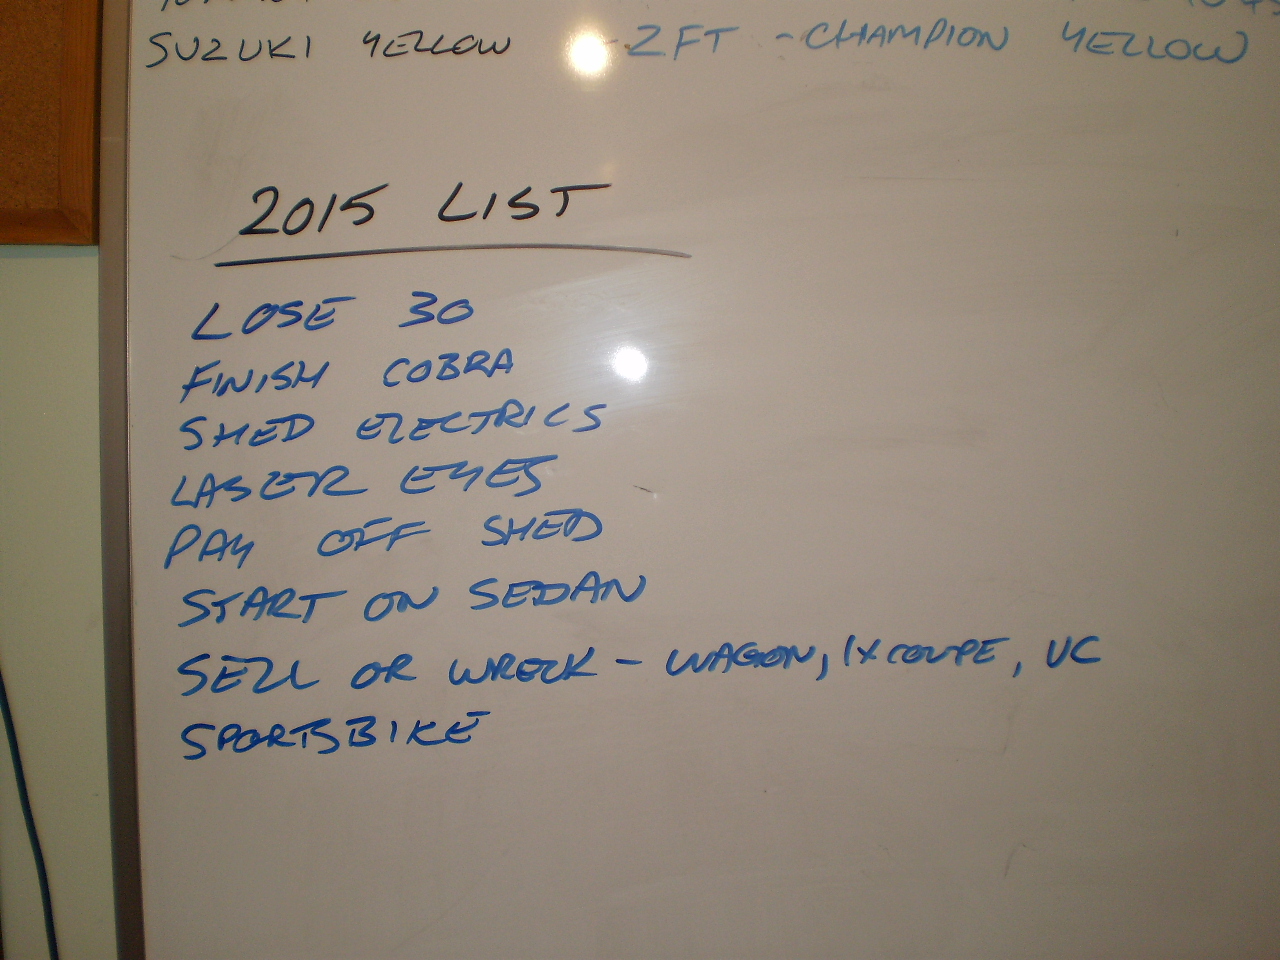 SUZUKI YELLOW - ZFT - CHAMPION YELLOW
2015 LIST
LOSE 30
FINISH COBRA
SHED ELECTRICS
LASER EYES
PAY OFF SHED
START ON SEDAN
SELL OR WRECK - WAGON, 1X COUPE, UC
SPORTSBIKE